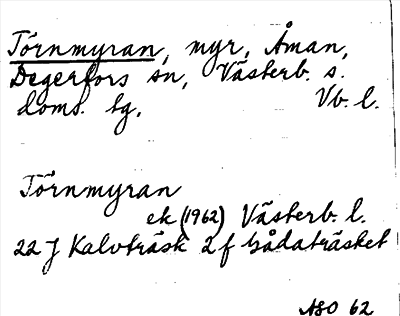 Törnmyran, myr, Åman,
Degerfors sn, Västerb. s.
doms. tg. Vb. l.
Törnmyran
ek (1962) Västerb. l.
22 J Kalvträsk 2 f Gådaträsket
ASO 62